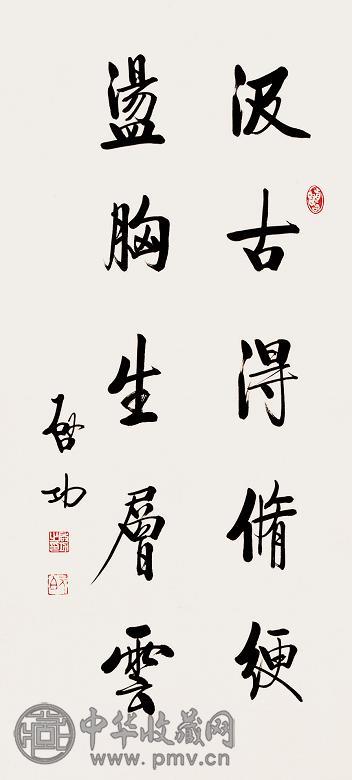 汲古得脩绠
盪胸生層雲
啓功
中华收藏网
www.pmv.cn